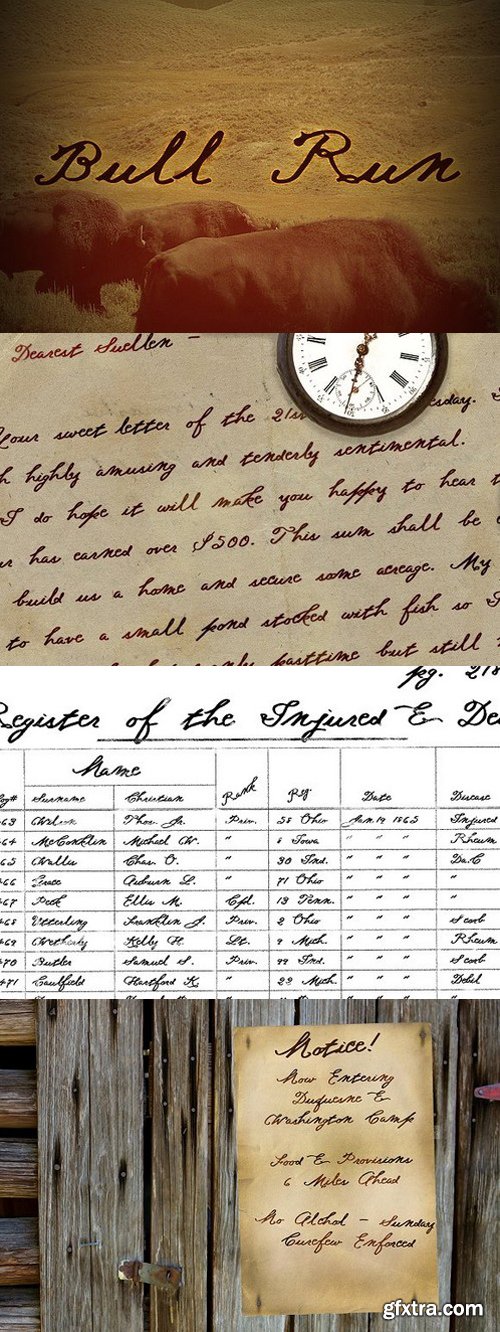 Bull Run
Dearest Suellen –
Your sweet letter of the 21st
highly amusing and tenderly sentimental.
I do hope it will make you happy to hear
has earned over $500. This sum shall be
build us a home and secure some acreage. My
to have a small pond stocked with fish so I
pasttime but still
pg. 218
Register of the Injured & De
Name
Log# Surname Christian Rank Reg Date Disease
463 Wilson Thos. Jr. Priv. 58 Ohio Jan. 19 1865 Injured
464 McConklin Michael W. " 8 Iowa " " " Rheum
465 Wallis Chas. O. " 30 Ind. " " " Da.C
466 Grace Auburn L. " 71 Ohio " " "
467 Peck Ellis M. Cpl. 13 Penn. " " "
468 Utterling Franklin J. Priv. 2 Ohio " " " Scorb
469 Wetherby Kelly H. Lt. 9 Mich. " " " Rheum
470 Butler Samuel S. Priv. 99 Ind. " " " Scorb
471 Caulfield Hartford K. " 22 Mich. " " " Debil
Notice!
Now Entering
Dufuesne &
Washington Camp
Food & Provisions
6 Miles Ahead
No Alchol – Sunday
Curefew Enforced
gfxtra.com